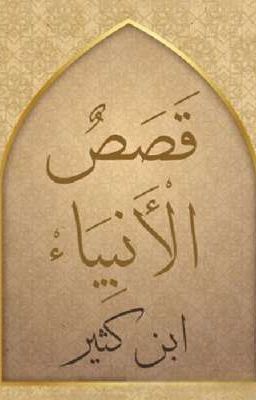 قَصَصٌ
الْأَنبِيَاءْ
ابن كثير